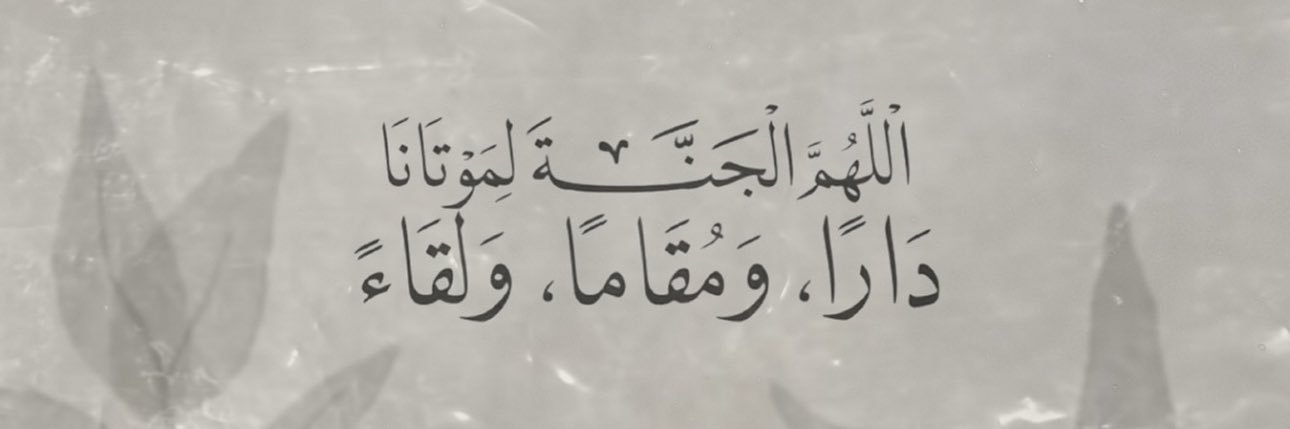 اْللَّهُمَّ الْجَنَّـــةَ لِمَوْتَانَا
دَارًا، وَمُقَامًا، وَلَقَاءً